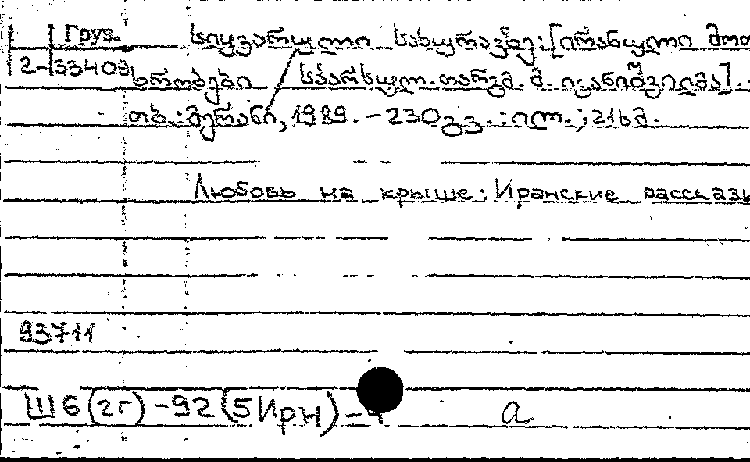 Груз. სიყვარული სახურავზე: [ირანული მოთ
2-33409 ხრობები / სპარსულ. თარგმ. მ. ივანიშვილმა]. -
თბ.: მერანი, 1989. - 230გვ.: ილ.; 21სმ.
Любовь на крыше: Иранские рассказы
93711
Ш6(2г)-92(5Ирн)-4 а